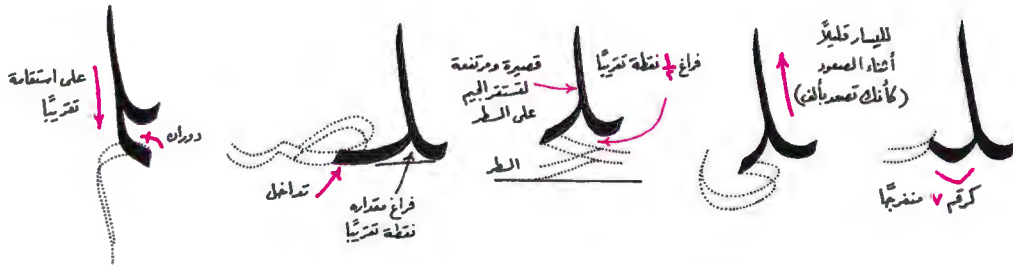 لليسار قليلاً
أثناء الصعود
(كأنك تصعد بألف)
كرقم ٧ منفرجًا
فراغ ½ نقطة تقريبًا
قصيرة ومرتفعة
لتستقر الجيم
على السطر
السطر
تداخل
فراغ مقداره
نقطة تقريبًا
على استقامة
تقريبًا
دوران